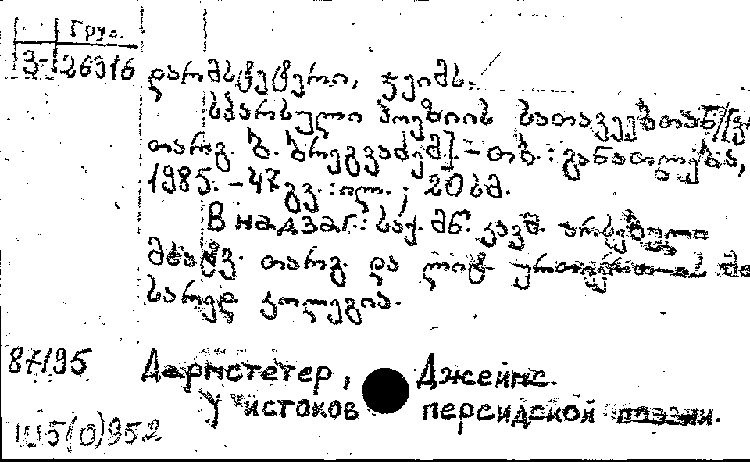 Груз.
3-26316
დარმსტეტერი, ჯეიმს.
სპარსული პოეზიის სათავეებთან/[
თარგ. ზ. ბრეგვაძემ]. – თბ.: განათლება,
1985. – 47 გვ.: ილ.; 20 სმ.
В надзаг.: საქ. მწ. კავშ. არსებული
მხატვ. თარგ. და ლიტ. ურთიერთობის მთ.
სარედ კოლეგია.
87195
Дармстетер, Джеймс.
У истоков персидской поэзии.
Ш5(0)952